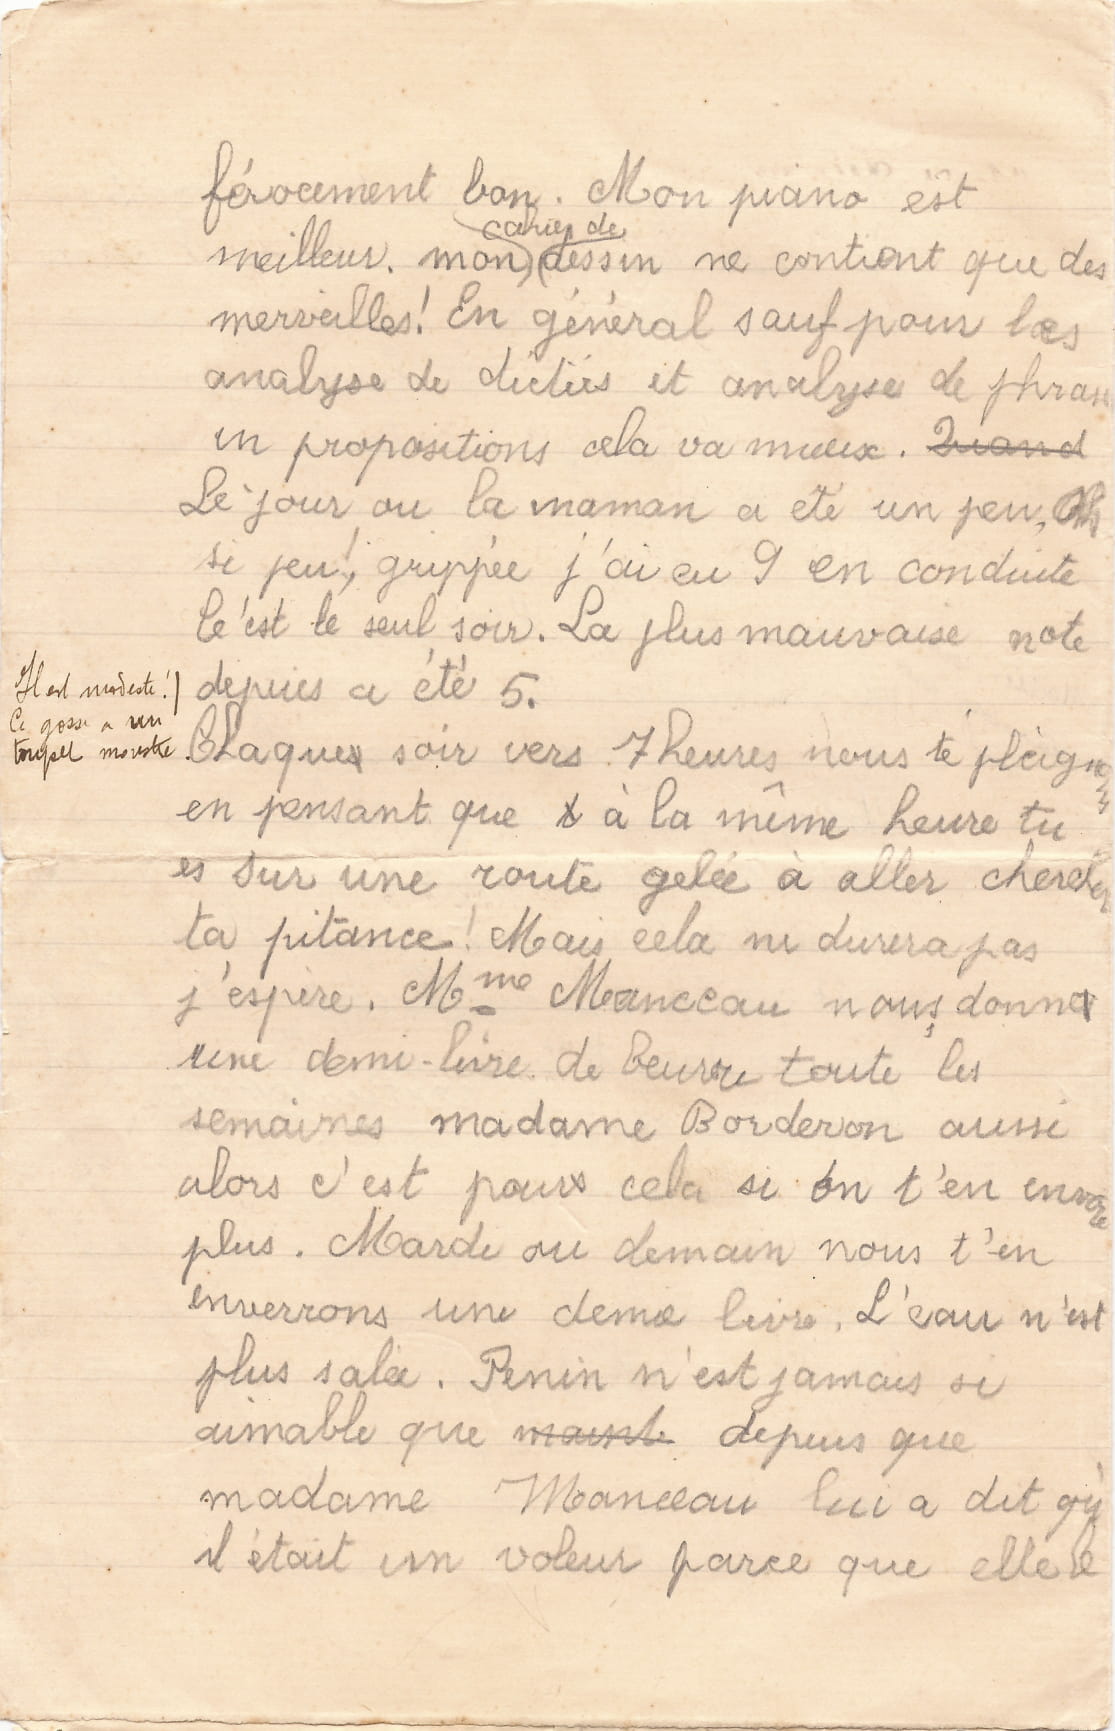 férocement bon. Mon piano est
meilleur. mon cahier de dessin ne contient que des
merveilles! En général sauf pour les
analyse de dictées et analyse de phrase
en propositions cela va mieux. Quand
Le jour ou la maman a été un peu, oh
si peu!, grippée j'ai eu 9 en conduite
C'est le seul soir. La plus mauvaise note
depuis a été 5.
Il est modeste!
Ce gosse a un
toupet monstre.
Chaque soir vers 7 heures nous te plaignons
en pensant que à la même heure tu
es sur une route gelée à aller chercher
ta pitance! Mais cela ne durera pas
j'espère. Mme Manceau nous donne
une demi-livre de beurre toute les
semaines madame Borderon aussi
alors c'est pour cela si on t'en envoie
plus. Mardi ou demain nous t'en
enverrons une demie livre. L'eau n'est
plus salée. Penin n'est jamais si
aimable que maint depuis que
madame Manceau lui a dit qu'
il était un voleur parce que elle le